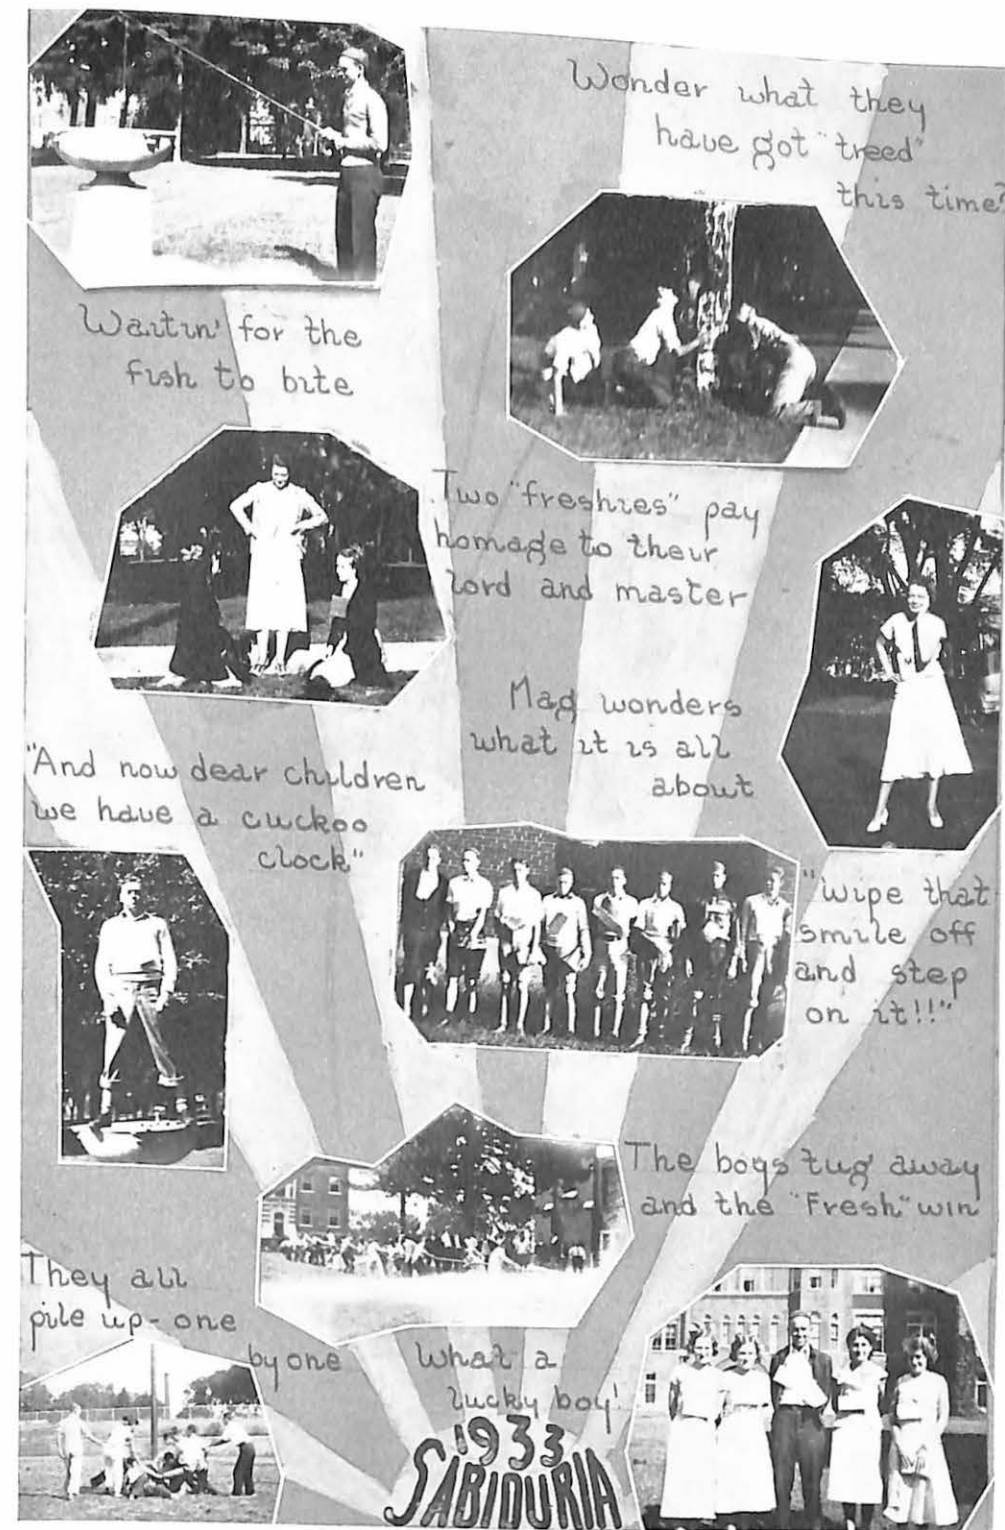 Wonder what they
have got "treed"
this time?
Waitin' for the
fish to bite
Two "freshies" pay
homage to their
lord and master
Mag wonders
what it is all
about
"And now dear children
we have a cuckoo
clock"
"Wipe that
smile off
and step
on it!!"
The boys tug away
and the "Fresh" win
They all
pile up - one
by one
What a
lucky boy!
1933
SABIDURIA